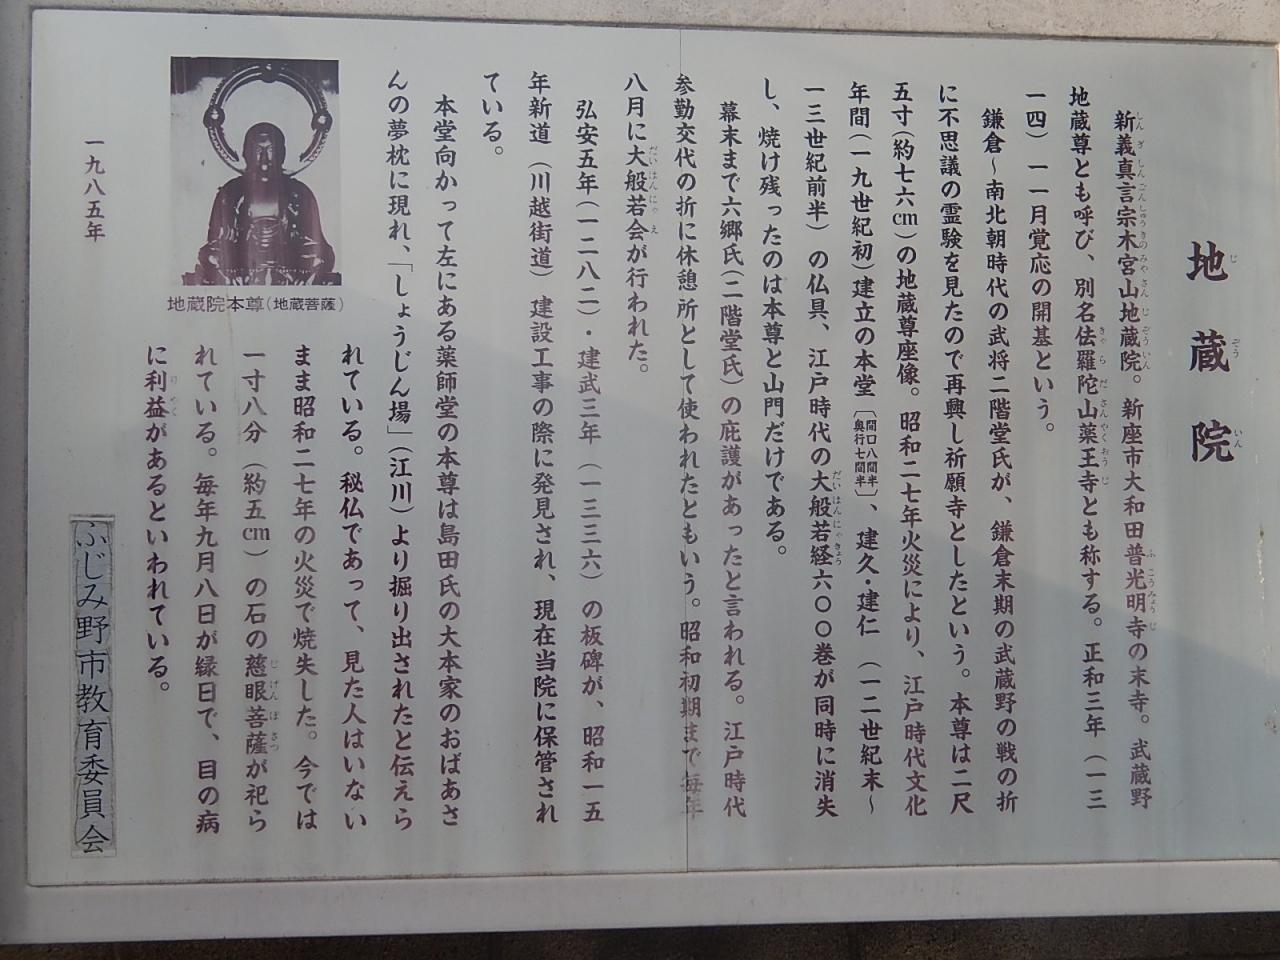 地蔵院
じぞういん
新義真言宗木宮山地蔵院。新座市大和田普光明寺の末寺。武蔵野
しんぎしんごんしゅうきのみやさんじぞういん ふこうみょうじ
地蔵尊とも呼び、別名佉羅陀山薬王寺とも称する。正和三年(一三
きゃらださんやくおうじ
一四)一一月覚応の開基という。
鎌倉~南北朝時代の武将二階堂氏が、鎌倉末期の武蔵野の戦の折
に不思議の霊験を見たので再興し祈願寺としたという。本尊は二尺
五寸(約七六cm)の地蔵尊座像。昭和二七年火災により、江戸時代文化
年間(一九世紀初)建立の本堂〔間口八間半奥行七間半〕、建久・建仁(一二世紀末~
一三世紀前半)の仏具、江戸時代の大般若経六〇〇巻が同時に消失
だいはんにゃきょう
し、焼け残ったのは本尊と山門だけである。
幕末まで六郷氏(二階堂氏)の庇護があったと言われる。江戸時代
参勤交代の折に休憩所として使われたともいう。昭和初期まで毎年
八月に大般若会が行われた。
だいはんにゃえ
弘安五年(一二八二)・建武三年(一三三六)の板碑が、昭和一五
年新道(川越街道)建設工事の際に発見され、現在当院に保管され
ている。
本堂向かって左にある薬師堂の本尊は島田氏の大本家のおばあさ
んの夢枕に現れ、「しょうじん場」(江川)より掘り出されたと伝えら
れている。秘仏であって、見た人はいない
まま昭和二七年の火災で焼失した。今では
一寸八分(約五cm)の石の慈眼菩薩が祀ら
じげんぼさつ
れている。毎年九月八日が縁日で、目の病
に利益があるといわれている。
りやく
地蔵院本尊(地蔵菩薩)
一九八五年
ふじみ野市教育委員会